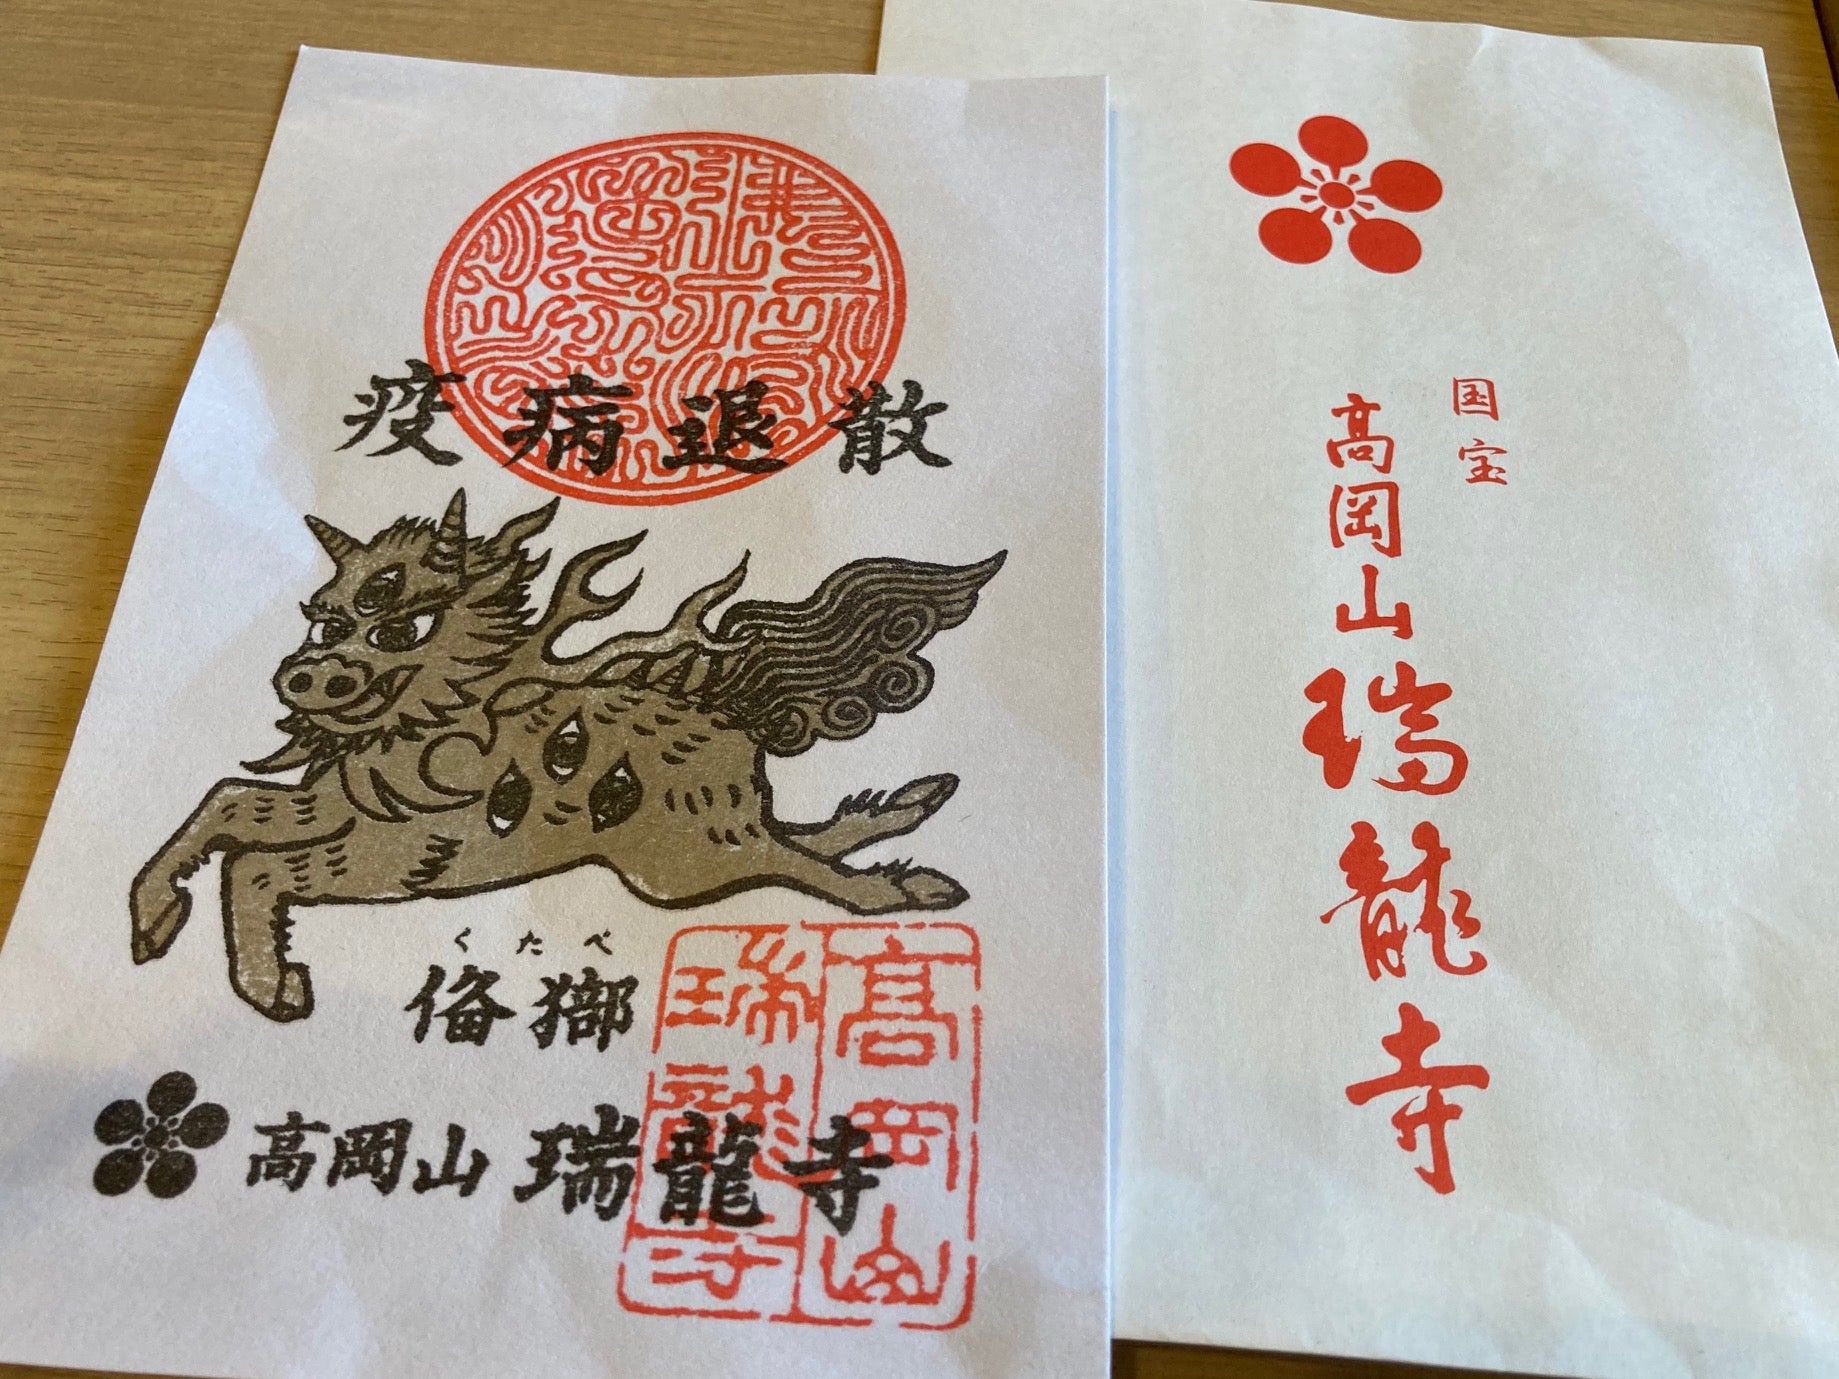 疫病退散
くたべ
高岡山 瑞龍寺
高岡山
瑞龍寺
国宝
高岡山瑞龍寺